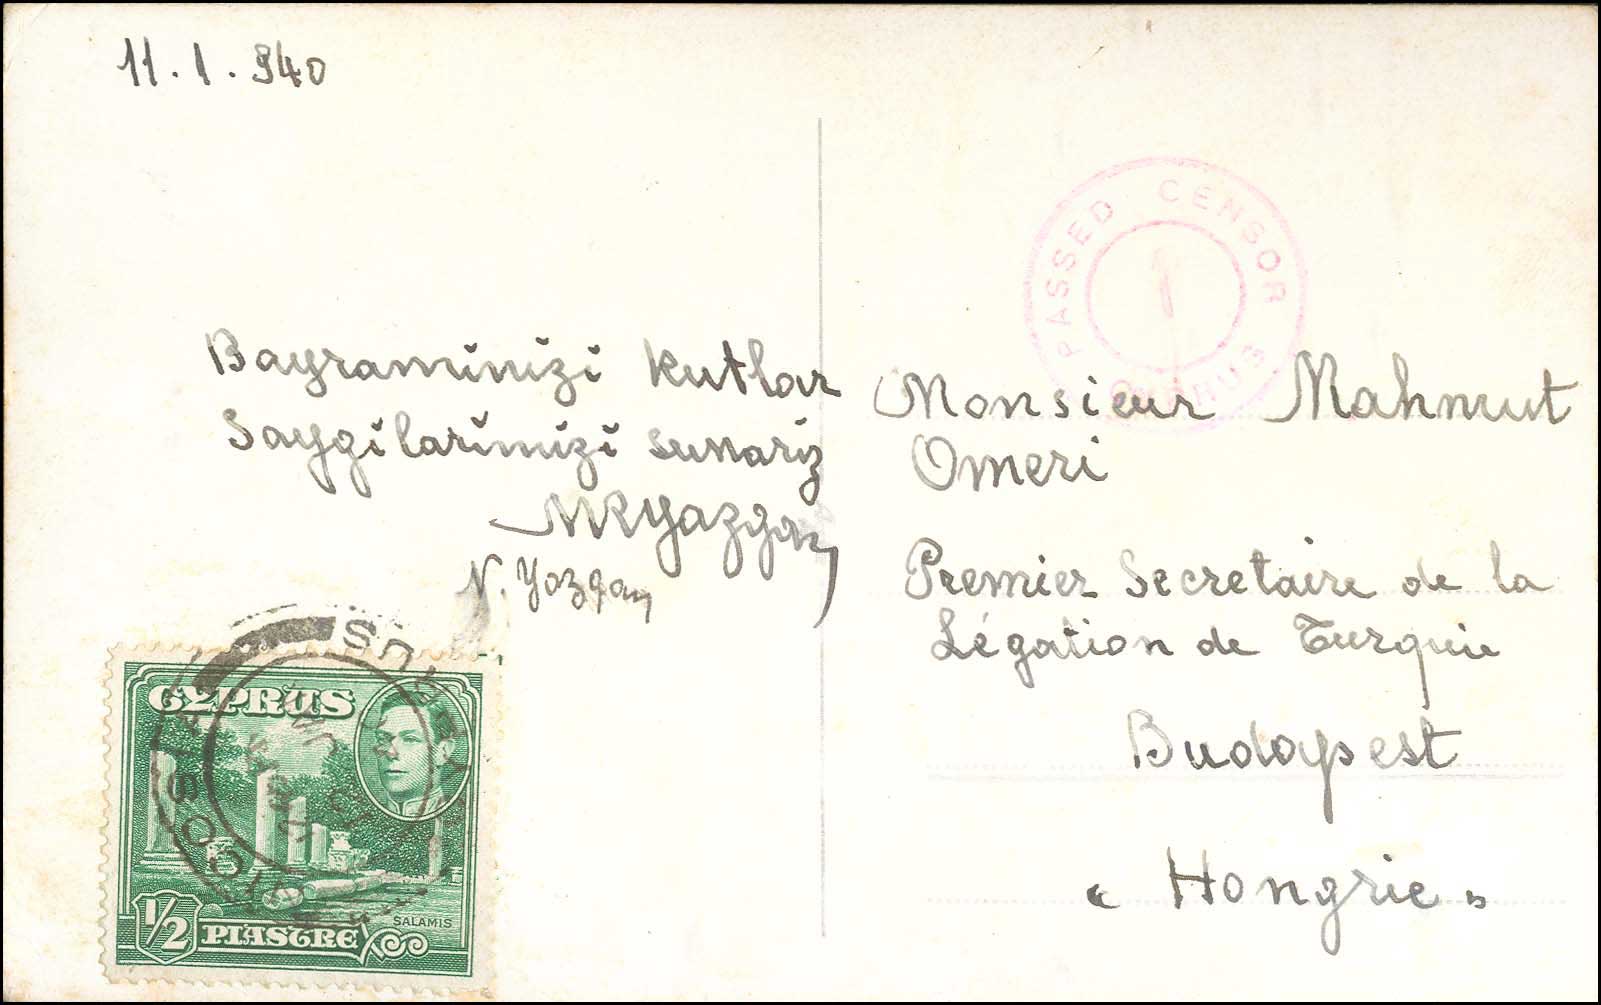 11.1.940
Bayraminizi kutlar
Saygilarimizi sunariz
MRyazgan
N. Yazgan
Monsieur Mahmut
Omeri
Premier Secretaire de la
Légation de Turquie
Budapest
« Hongrie »
PASSED CENSOR
1
CYPRUS
NICOSIA CYPRUS
CYPRUS
SALAMIS
1/2 PIASTRE